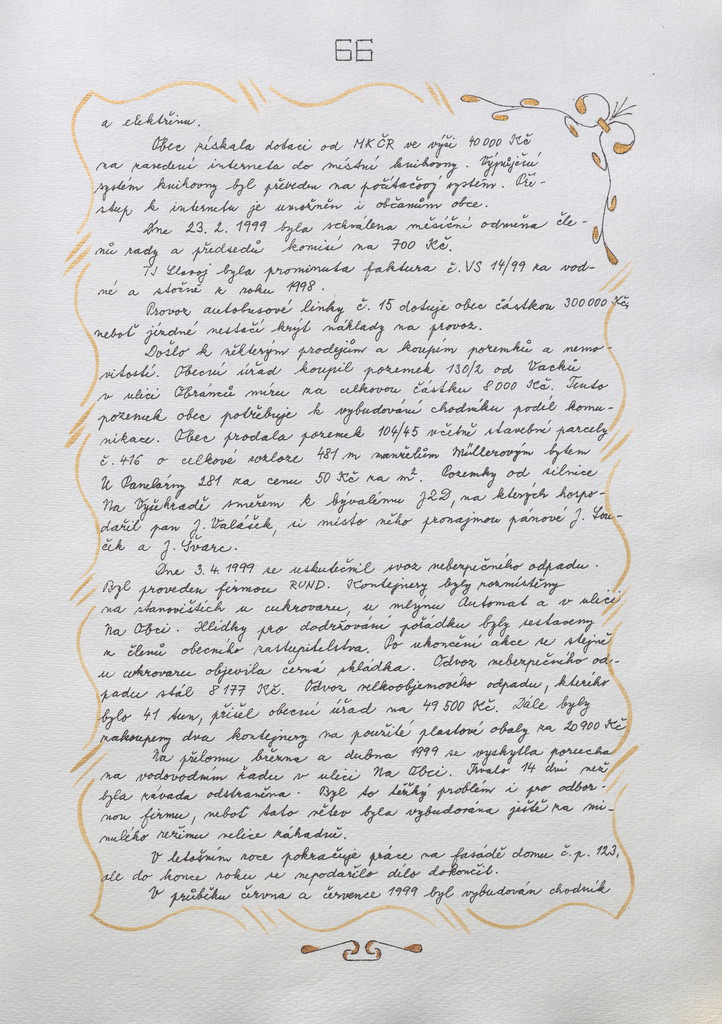 66
a elektřinu.
Obec získala dotaci od MKČR ve výši 40 000 Kč
na zavedení internetu do místní knihovny. Výpůjční
systém knihovny byl převeden na počítačový systém. Pří-
stup k internetu je umožněn i občanům obce.
Dne 23. 2. 1999 byla schválena měsíční odměna čle-
nů rady a předsedů komisí na 700 Kč.
TJ Slavoj byla prominuta faktura č. VS 14/99 za vod-
né a stočné z roku 1998.
Provoz autobusové linky č. 15 dotuje obec částkou 300 000 Kč,
neboť jízdné nestačí krýt náklady na provoz.
Došlo k některým prodejům a koupím pozemků a nemo-
vitostí. Obecní úřad koupil pozemek 130/2 od Vacků
v ulici Obránců míru za celkovou částku 8 000 Kč. Tento
pozemek obec potřebuje k vybudování chodníku podél komu-
nikace. Obec prodala pozemek 104/45 včetně stavební parcely
č. 416 o celkové rozloze 481 m manželům Müllerovým bytem
U Panelárny 281 za cenu 50 Kč za m². Pozemky od silnice
Na Vyšehradě směrem k bývalému JZD, na kterých hospo-
dařil pan J. Valášek, si místo něho pronajmou pánové J. Sou-
ček a J. Švarc.
Dne 3. 4. 1999 se uskutečnil svoz nebezpečného odpadu.
Byl proveden firmou RUND. Kontejnery byly rozmístěny
na stanovištích u cukrovaru, u mlýnu Automat a v ulici
Na Obci. Hlídky pro dodržování pořádku byly sestaveny
z členů obecního zastupitelstva. Po ukončení akce se stejně
u cukrovaru objevila černá skládka. Odvoz nebezpečného od-
padu stál 8 177 Kč. Odvoz velkoobjemového odpadu, kterého
bylo 41 tun, přišel obecní úřad na 49 500 Kč. Dále byly
zakoupeny dva kontejnery na použité plastové obaly za 20 900 Kč
Na přelomu března a dubna 1999 se vyskytla porucha
na vodovodním řadu v ulici Na Obci. Trvalo 14 dní než
byla závada odstraněna. Byl to těžký problém i pro odbor-
nou firmu, neboť tato větev byla vybudována ještě za mi-
nulého režimu velice záhadně.
V letošním roce pokračuje práce na fasádě domu č. p. 123,
ale do konce roku se nepodařilo dílo dokončit.
V průběhu června a července 1999 byl vybudován chodník